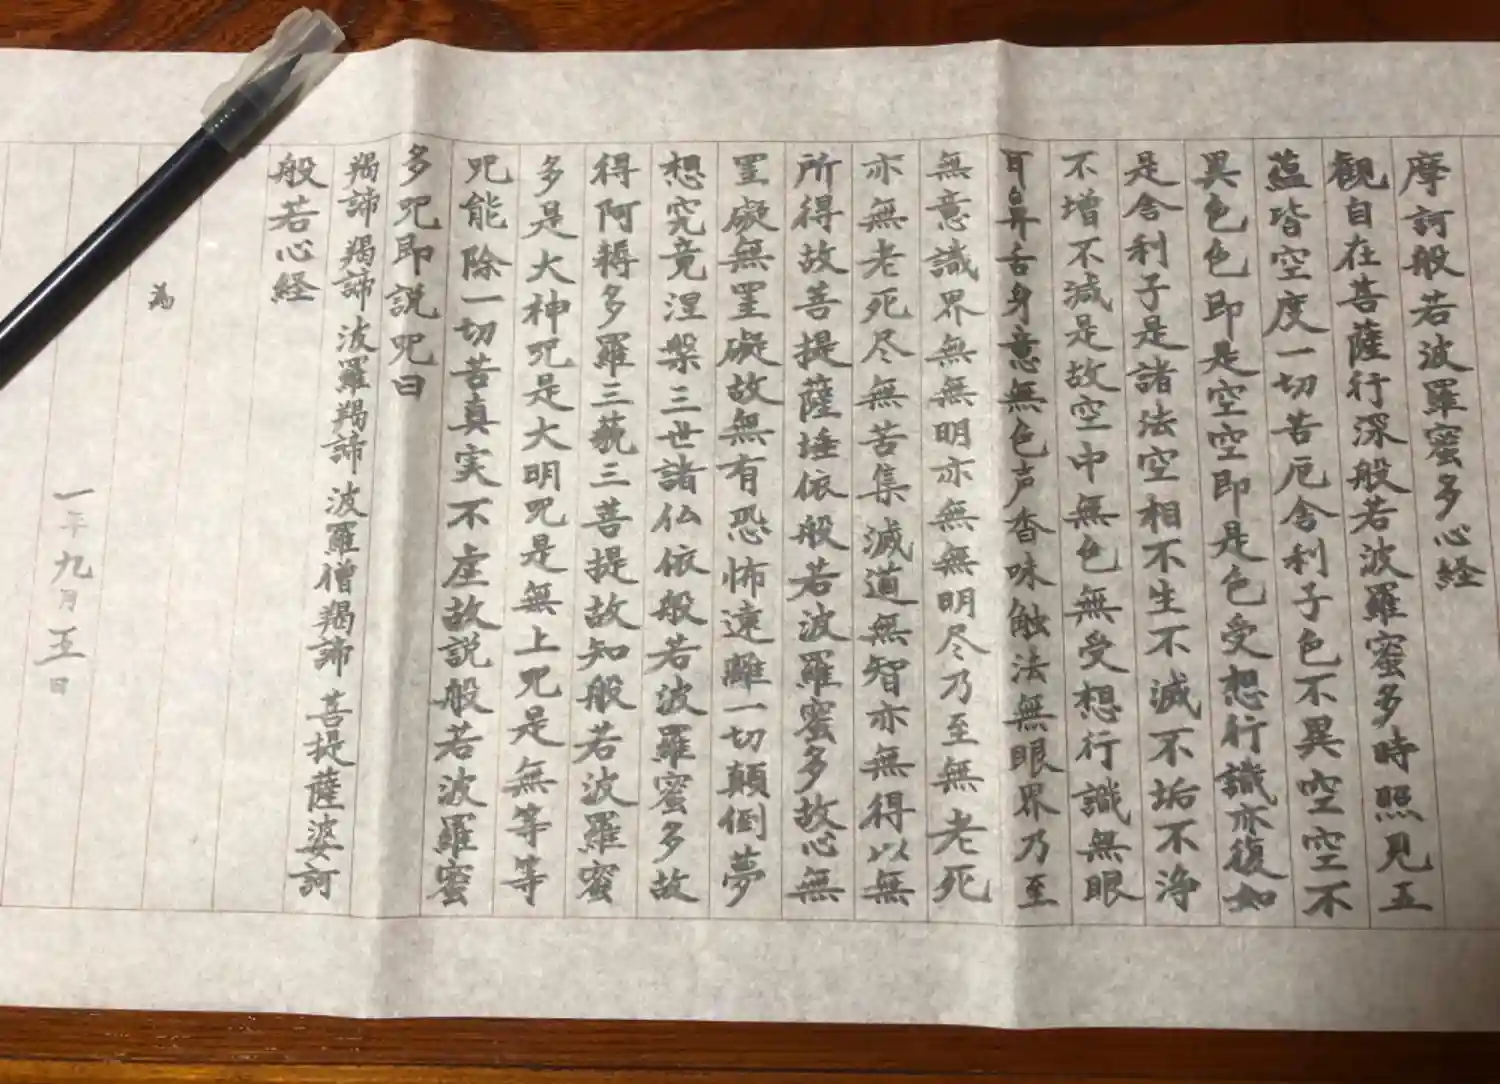 摩訶般若波羅蜜多心経
觀自在菩薩行深般若波羅蜜多時照見五
蘊皆空度一切苦厄舎利子色不異空空不
異色色即是空空即是色受想行識亦復如
是舎利子是諸法空相不生不滅不垢不浄
不増不減是故空中無色無受想行識無眼
耳鼻舌身意無色声香味触法無眼界乃至
無意識界無無明亦無無明尽乃至無老死
亦無老死尽無苦集滅道無智亦無得以無
所得故菩提薩埵依般若波羅蜜多故心無
罣礙無罣礙故無有恐怖遠離一切顛倒夢
想究竟涅槃三世諸仏依般若波羅蜜多故
得阿耨多羅三藐三菩提故知般若波羅蜜
多是大神呪是大明呪是無上呪是無等等
呪能除一切苦真実不虚故説般若波羅蜜
多呪即説呪曰
羯諦羯諦波羅羯諦波羅僧羯諦菩提薩婆訶
般若心経
為
一年九月五日